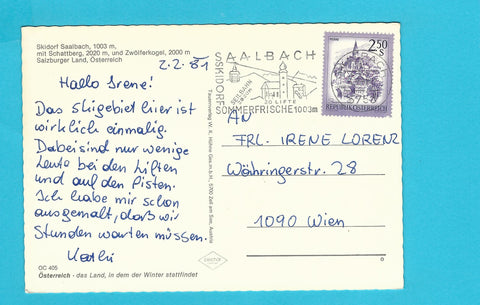 Skidorf Saalbach, 1003 m,
mit Schattberg, 2020 m, und Zwölferkogel, 2000 m
Salzburger Land, Österreich
2.2.81
Hallo Irene!
Das Skigebiet hier ist
wirklich einmalig.
Dabei sind nur wenige
Leute bei den Liften
und auf den Pisten.
Ich habe mir schon
ausgemalt, daß wir
Stunden warten müssen.
Kathi
OC 405
Österreich - das Land, in dem der Winter stattfindet
SAALBACH
SKIDORF
SEILBAHN
20 LIFTE
SOMMERFRISCHE 1003m
2.50
S
REPUBLIK ÖSTERREICH
5753
AN
FRL. IRENE LORENZ
Währingerstr. 28
1090 Wien